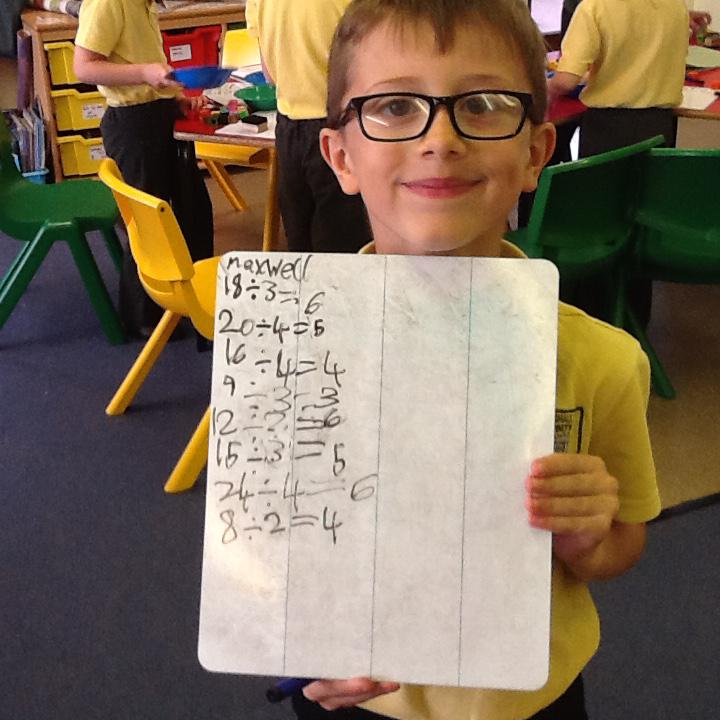 maxwell
18÷3=6
20÷4=5
16÷4=4
9÷3=3
12÷2=6
15÷3=5
24÷4=6
8÷2=4